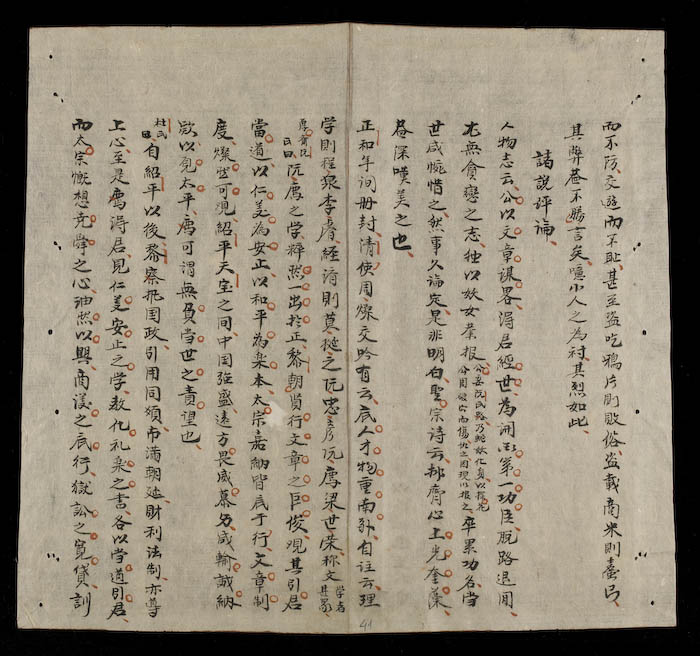 而不防交遊而不恥甚至盜吃鴉片則敗俗盜載商米則蠹民
其弊蓋不勝言矣噫小人之為禍其烈如此
諸說評論
人物志云公以文章謀畧得君經世為開國第一功臣脫路退閒
尤無貪戀之志独以妖女業报卒累功名当
世咸惋惜之然事久論定是非明白聖宗诗云抑齋心上光奎藻
蓋深嘆美之也
正和年间册封清使周燦交吟有云底人才物重南郊自註云理
学則程狼李濬經濟則莫挺之阮忠彥阮廌梁世荣称文學者
氏曰阮廌之学粹然一出於正黎朝贤行文章之巨俊观其引君
當道以仁義為安正以和平為楽本太宗嘉納皆底于行文章制
度燦然可观紹平天宝之间中国強盛遠方畏威慕义咸輸誠納
欵以見太平廌可谓無負当世之责望也
杜氏曰自紹平以後黎察国政引用同類布满朝廷財利法制亦尊
上心至是廌得君見仁義安正之学教化礼楽之書各以当道引君
而太宗慨想尭舜之心油然以興商議之底行獄讼之寬貸訓